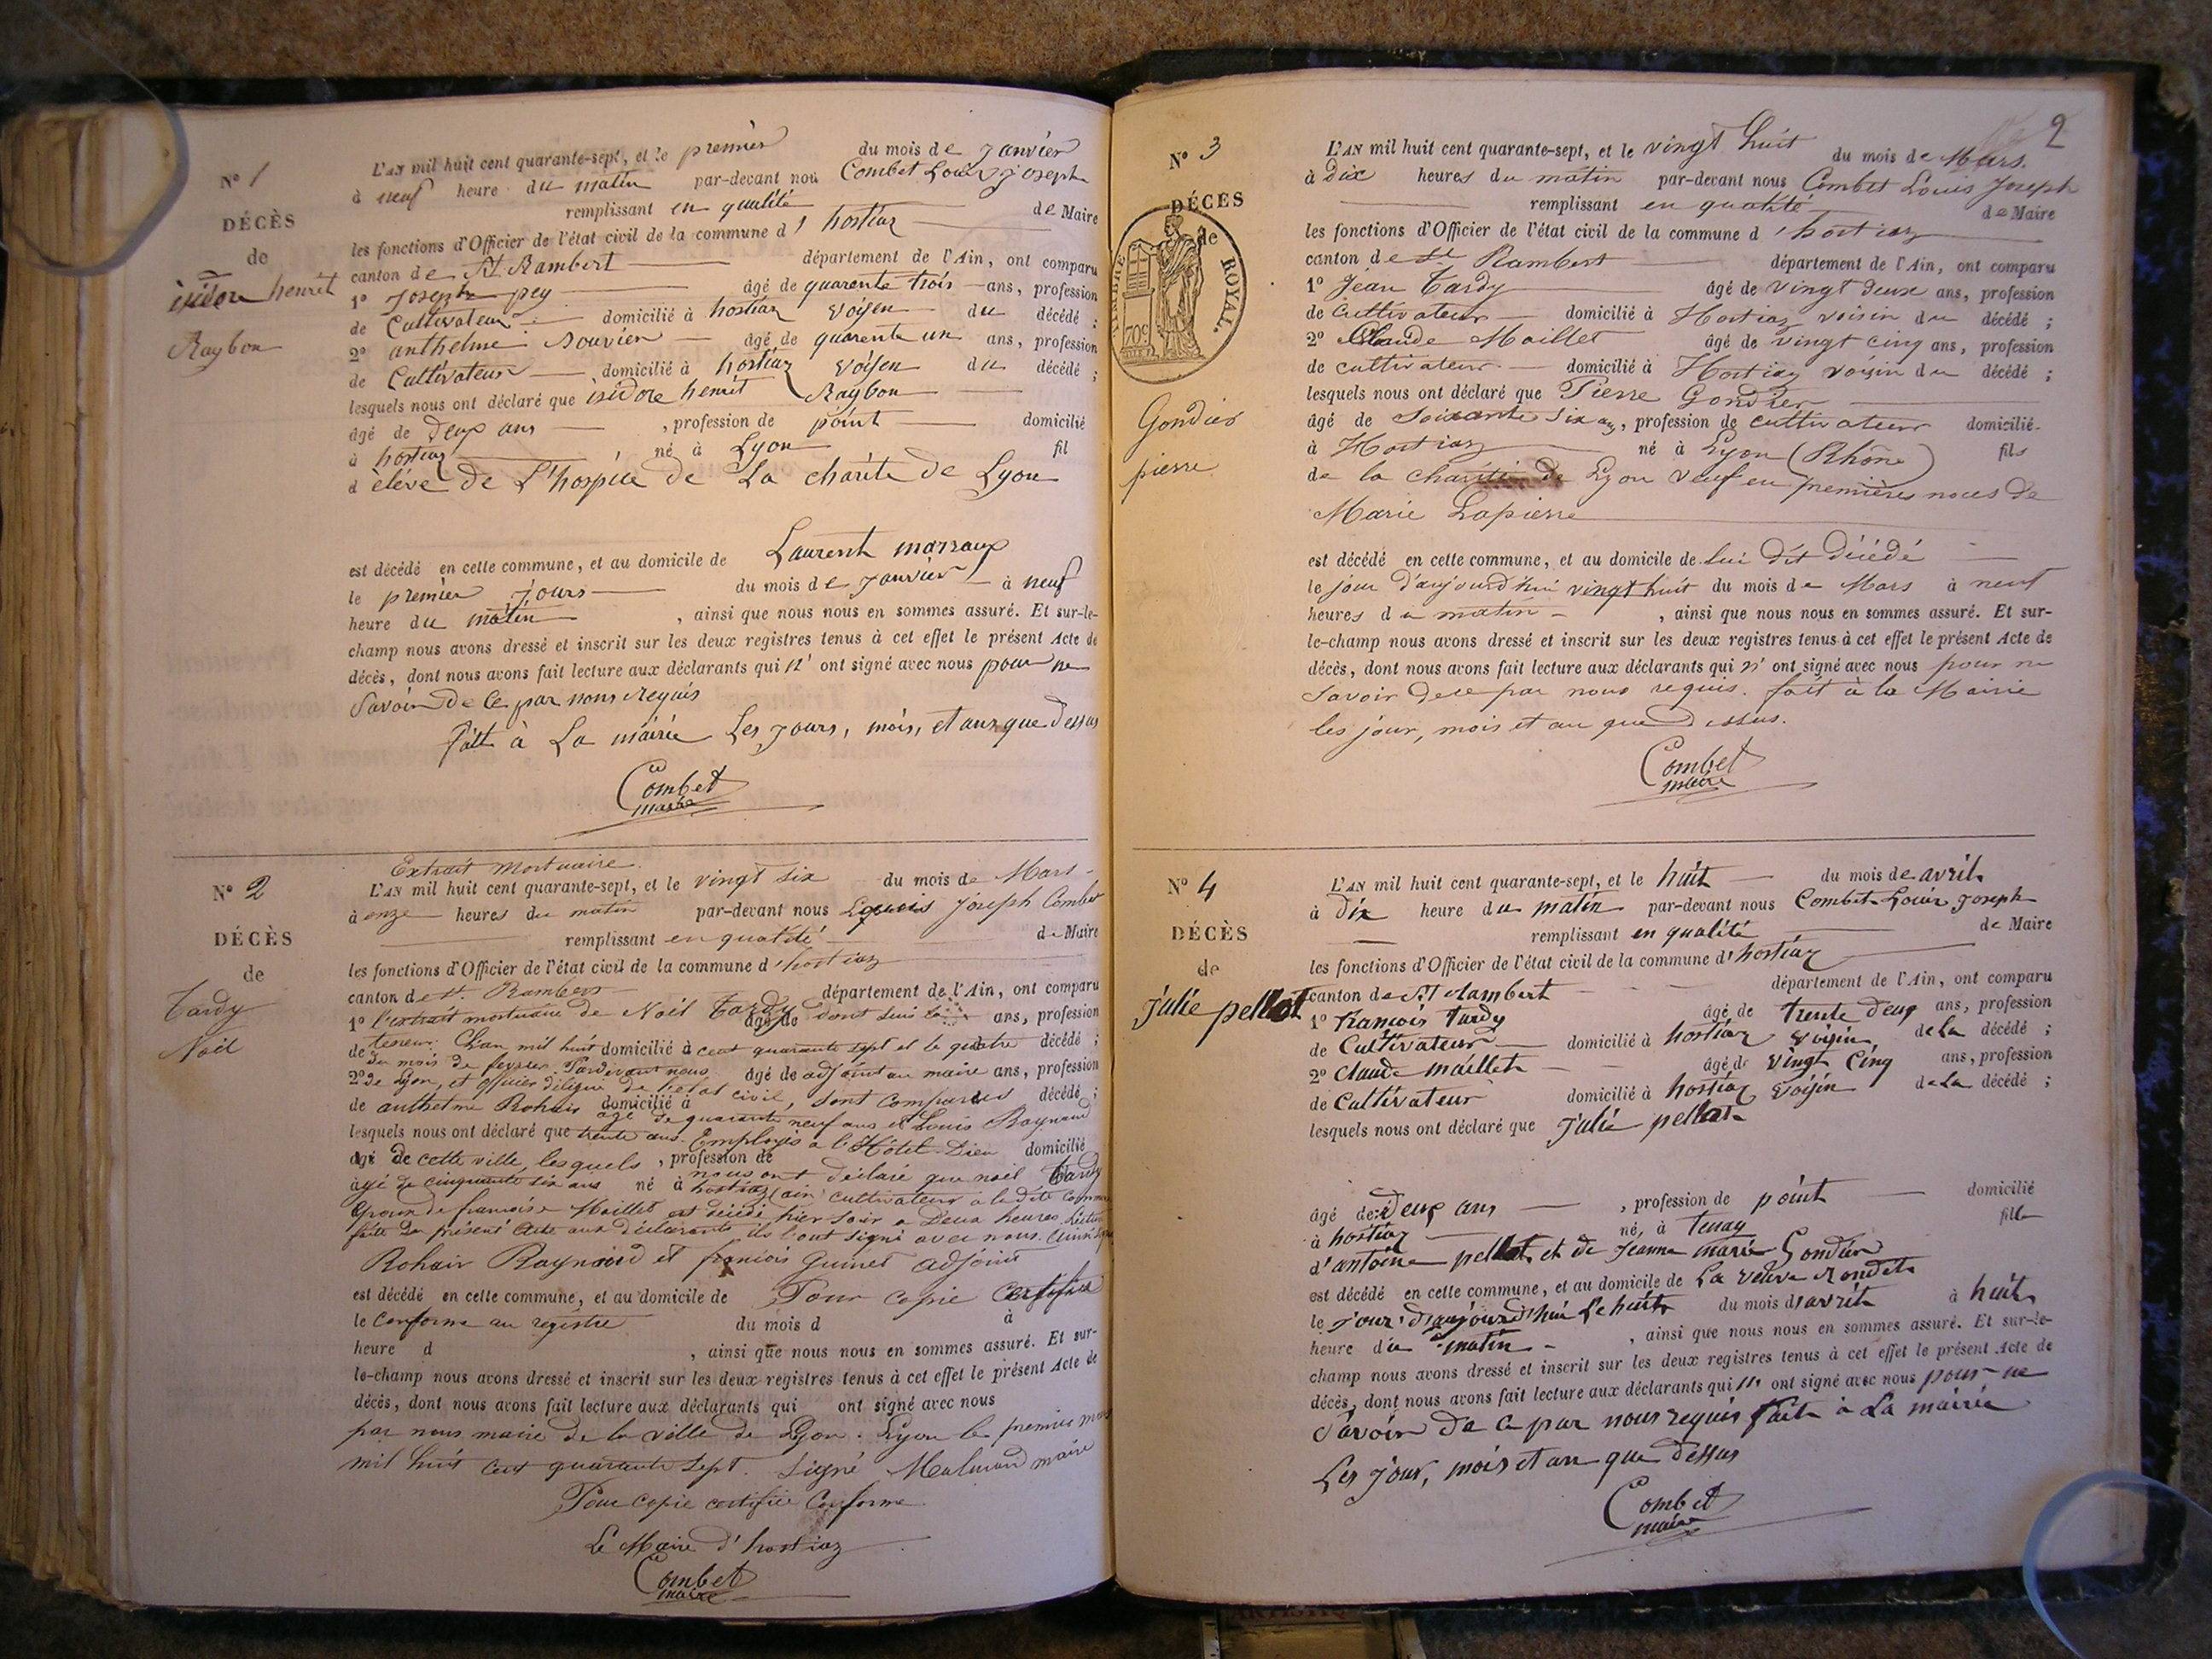 N° 1
DÉCÈS
de
isidore henrit
Raybon
L'AN mil huit cent quarante-sept, et le premier du mois de janvier
à neuf heure du matin par-devant nou Combet Louis joseph
remplissant en qualité de Maire
les fonctions d'Officier de l'état civil de la commune d'hostiaz
canton de St Rambert département de l'Ain, ont comparu
1° Joseph pey âgé de quarente trois ans, profession
de Cultivateur domicilié à hostiaz voisen du décédé ;
2° anthelme Bouvier âgé de quarente un ans, profession
de Cultivateur domicilié à hostiaz voisen du décédé ;
lesquels nous ont déclaré que isidore henrit Raybon
âgé de deux ans , profession de point domicilié
à hostiaz né à Lyon fil
d élève de L'hospice de La charite de Lyon
est décédé en cette commune, et au domicile de Laurent marraux
le premier jours du mois de janvier à neuf
heure du matin , ainsi que nous nous en sommes assuré. Et sur-le-
champ nous avons dressé et inscrit sur les deux registres tenus à cet effet le présent Acte de
décès, dont nous avons fait lecture aux déclarants qui n' ont signé avec nous pour ne
savoir de ce par nous requis
fait à La mairie Les jours, mois, et ans que dessus
Combet
maire
N° 2
DÉCÈS
de
Tardy
Noël
Extrait Mortuaire.
L'AN mil huit cent quarante-sept, et le vingt six du mois de Mars
à onze heures du matin par-devant nous Louis joseph Combet
remplissant en qualité de Maire
les fonctions d'Officier de l'état civil de la commune d'hostiaz
canton de St. Rambert département de l'Ain, ont comparu
1° l'extrait mortuaire de Noël Tardy âgé de dont suis la ans, profession
de teneur. L'an mil huit domicilié à cent quarante sept et le quatre décédé ;
du mois de fevrier Pardevant nous
2° de Lyon, et officier délégué de l'état civil, âgé de adjoint au maire ans, profession
de anthelme Rohair domicilié à sont comparus décédé ;
agé de quarante neuf ans et Louis Raynaud
lesquels nous ont déclaré que trente ans. Employés a l'Hôtel-Dieu
âgé de cette ville, lesquels , profession de domicilié
nous ont déclaré que noël Tardy
âgé de cinquante six ans né à hostiaz (ain) cultivateur a la dite Commune
Epoux de françoise Maillet est décédé hier soir a Deux heures. Lecture
faite du présent acte aux déclarants ils l'ont signé avec nous.
Rohair Raynaud et françois Guinet adjoint
est décédé en cette commune, et au domicile de Pour copie certifiée
le conforme au registre du mois d à
heure d , ainsi que nous nous en sommes assuré. Et sur-
le-champ nous avons dressé et inscrit sur les deux registres tenus à cet effet le présent Acte de
décès, dont nous avons fait lecture aux déclarants qui ont signé avec nous
par nous maire de la ville de Lyon. Lyon le premier mars
mil huit cent quarante sept. Signé maire
Pour copie certifiée Conforme.
Le Maire d'hostiaz
Combet
maire
2
N° 3
DÉCÈS
de
TIMBRE ROYAL.
70c
Gondier
pierre
L'AN mil huit cent quarante-sept, et le vingt huit du mois de Mars.
à Dix heures du matin par-devant nous Combet Louis Joseph
remplissant en qualité de Maire
les fonctions d'Officier de l'état civil de la commune d'hostiaz
canton de St Rambert département de l'Ain, ont comparu
1° Jean Tardy âgé de vingt deux ans, profession
de cultivateur domicilié à Hostiaz voisin du décédé ;
2° Claude Maillet âgé de vingt cinq ans, profession
de cultivateur domicilié à Hostiaz voisin du décédé ;
lesquels nous ont déclaré que Pierre Gondier
âgé de soixante six ans, profession de cultivateur domicilié
à Hostiaz né à Lyon (Rhône) fils
de la charité de Lyon veuf en premières noces de
Marie Lapierre
est décédé en cette commune, et au domicile de lui dit décédé
le jour d'aujourd'hui vingt huit du mois de Mars à neuf
heures du matin , ainsi que nous nous en sommes assuré. Et sur-
le-champ nous avons dressé et inscrit sur les deux registres tenus à cet effet le présent Acte de
décès, dont nous avons fait lecture aux déclarants qui n' ont signé avec nous pour ne
savoir de ce par nous requis. fait à la Mairie
les jour, mois et an que dessus.
Combet
maire
N° 4
DÉCÈS
de
Julie pellot
L'AN mil huit cent quarante-sept, et le huit du mois de avril
à dix heure du matin par-devant nous Combet Louis Joseph
remplissant en qualité de Maire
les fonctions d'Officier de l'état civil de la commune d'hostiaz
canton de St rambert département de l'Ain, ont comparu
1° francois Tardy âgé de trente deux ans, profession
de Cultivateur domicilié à hostiaz voisin de la décédé ;
2° Claude maillet âgé de vingt cinq ans, profession
de Cultivateur domicilié à hostiaz voisin de la décédé ;
lesquels nous ont déclaré que Julie pellot
âgé de deux ans , profession de point domicilié
à hostiaz né, à tenay fille
d'antoine pellot et de Jeanne marie Gondier
est décédé en cette commune, et au domicile de La veuve Rondet
le jour d'aujourd'hui Le huit du mois d'avril à huit
heure du matin , ainsi que nous nous en sommes assuré. Et sur-le-
champ nous avons dressé et inscrit sur les deux registres tenus à cet effet le présent Acte de
décès, dont nous avons fait lecture aux déclarants qui n' ont signé avec nous pour ne
savoir de ce par nous requis fait à La mairie
Les jour, mois et an que dessus
Combet
maire